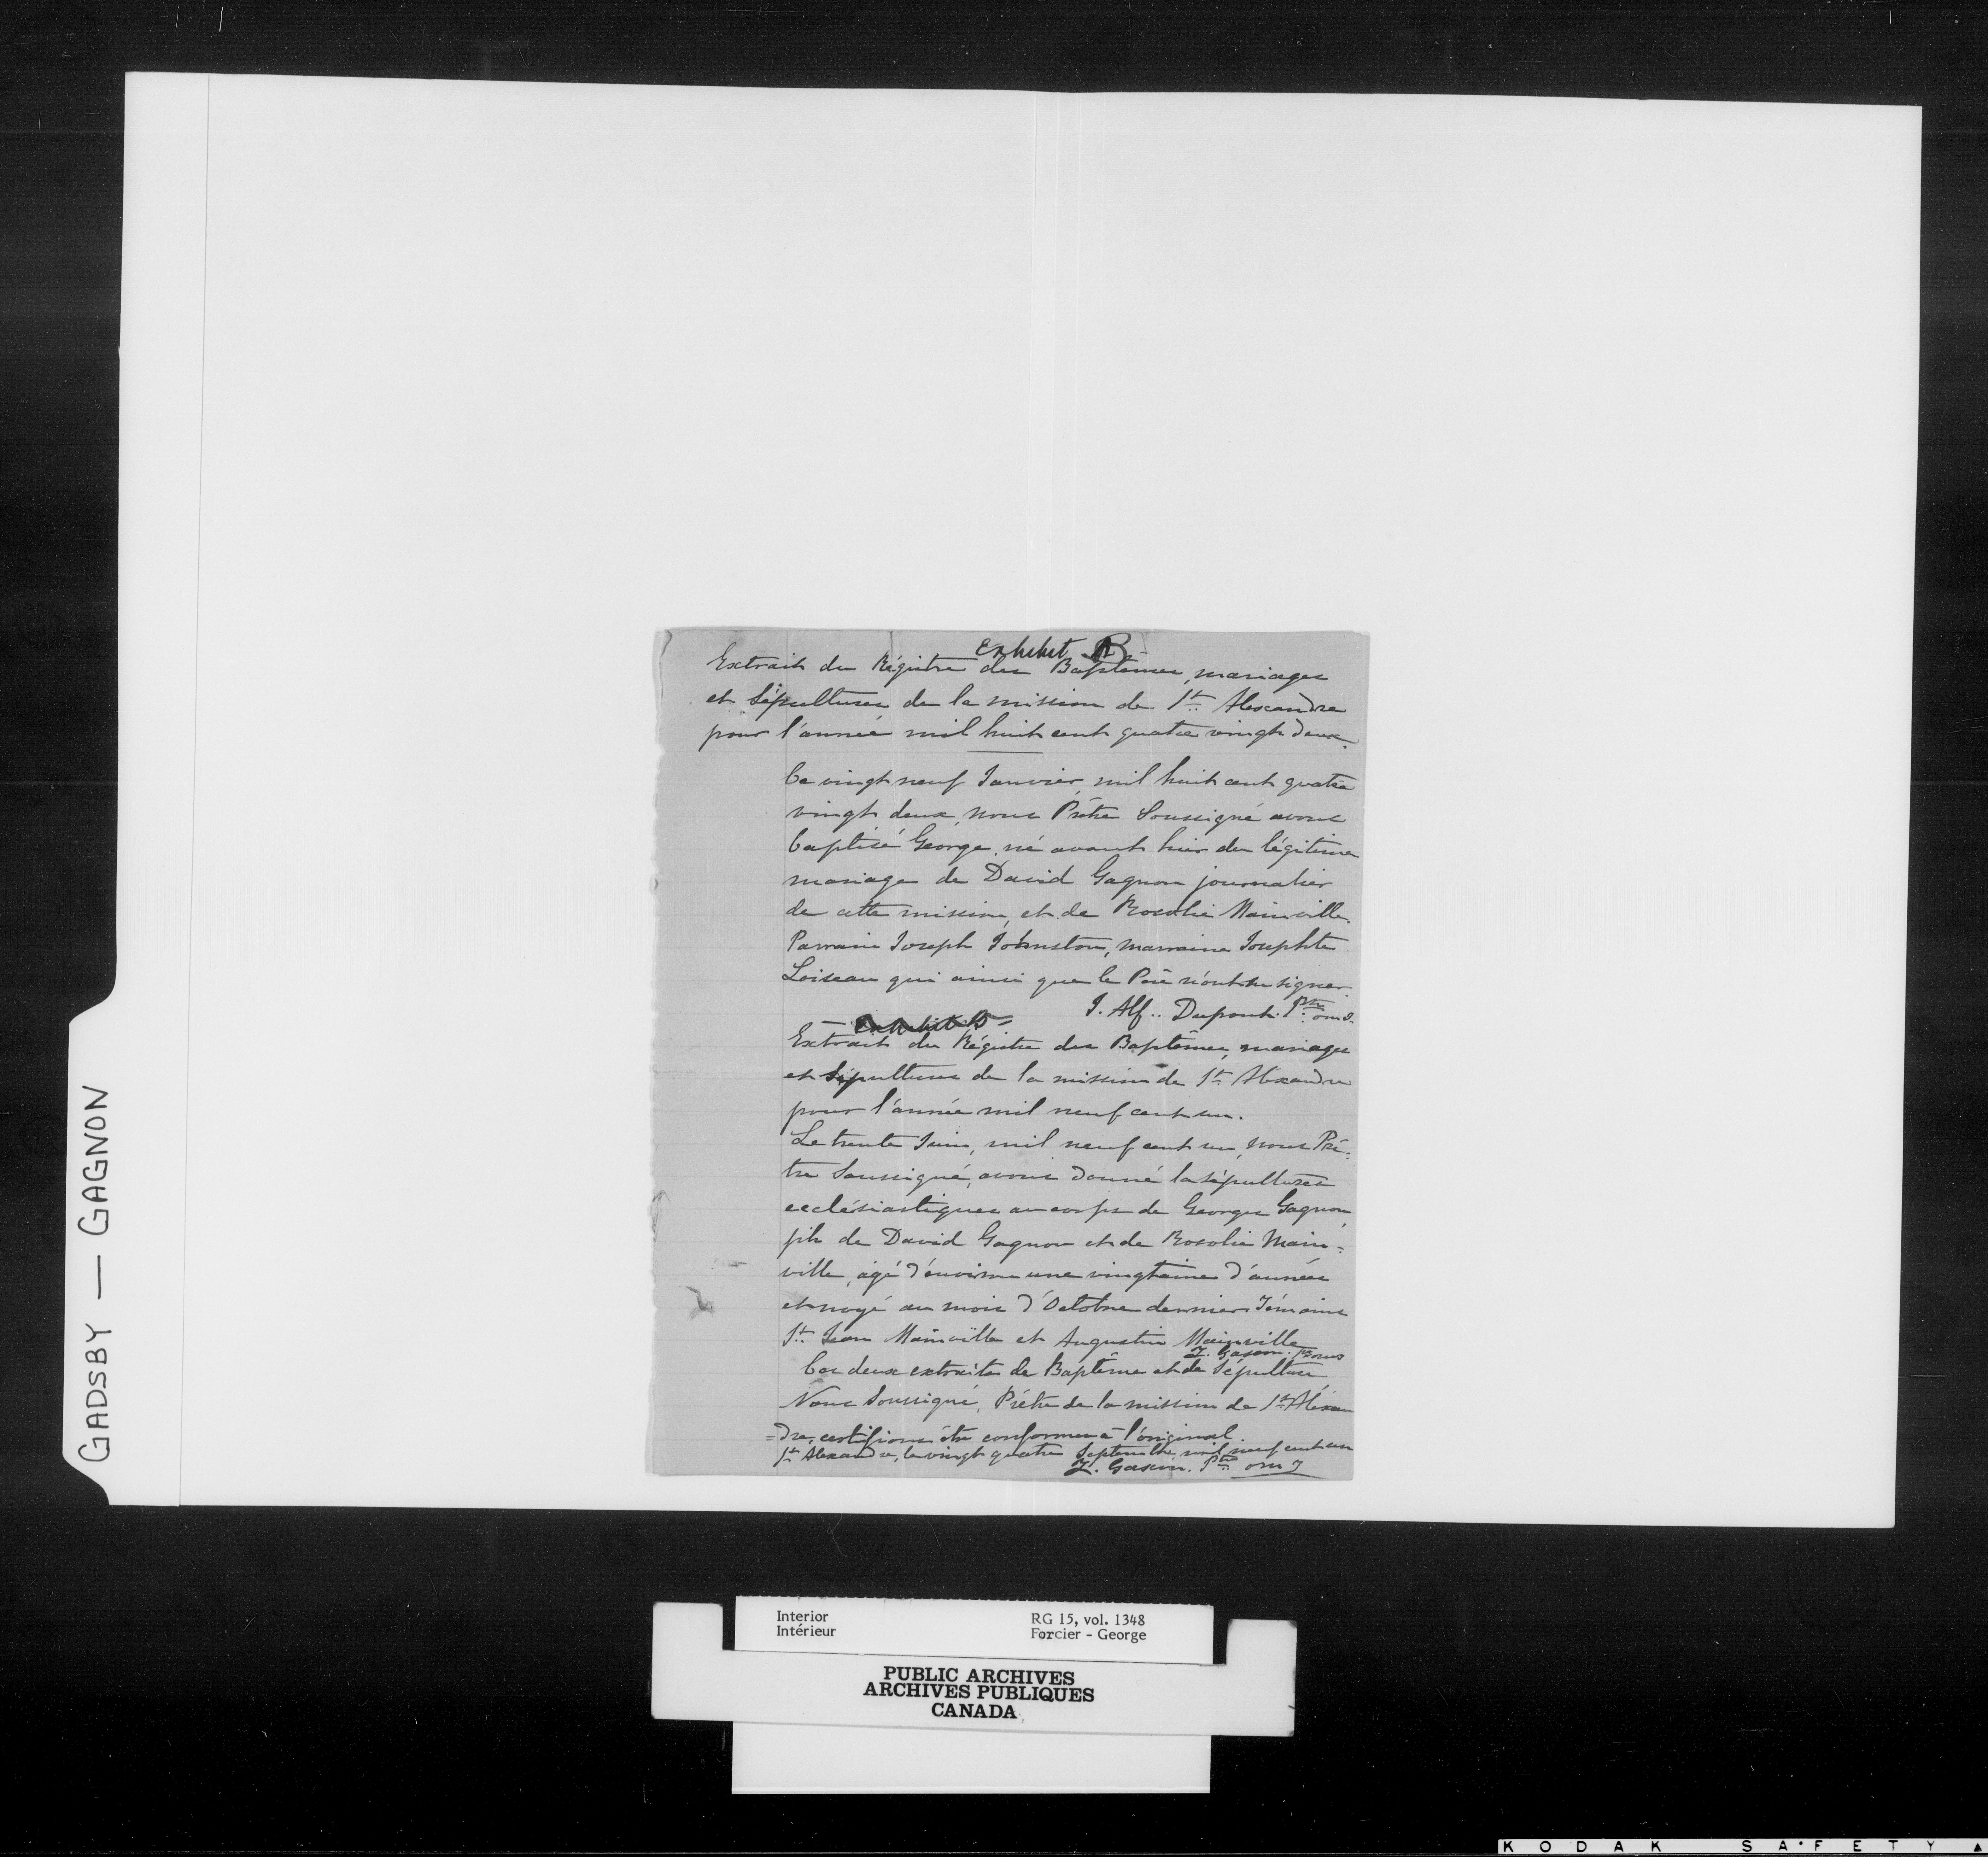 GADSBY — GAGNON
Exhibit B
Extrait du Régistre des Baptêmes, mariages
et Sépultures de la mission de St. Alexandre
pour l'année mil huit cent quatre vingt deux.
Ce vingt neuf Janvier, mil huit cent quatre
vingt deux, nous Prêtre Soussigné avons
baptisé George, né avant hier du légitime
mariage de David Gagnon journalier
de cette mission, et de Rosalie Mainville.
Parrain Joseph Johnston, marraine Josephte
Loiseau qui ainsi que le Père n'ont su signer.
J. Alf.. Dupont. Ptre o.m.i.
Extrait du Régistre des Baptêmes, mariages
et Sépultures de la mission de St. Alexandre
pour l'année mil neuf cent un.
Le trente Juin, mil neuf cent un, nous Prê-
tre Soussigné, avons donné la sépulture
ecclésiastique au corps de George Gagnon
fils de David Gagnon et de Rosalie Main=
ville, agé d'environ une vingtaine d'années
et noyé au mois d'Octobre dernier Témoins
St. Jean Mainville et Augustin Mainville
J. Gascon. Ptre omi
Ces deux extraits de Baptême et de Sépulture
Nous Soussigné, Prêtre de la mission de St. Aléxan
=dre, certifions être conformes à l'original.
St. Alexandre, le vingt quatre Septembre mil neuf cent un
J. Gascon. Ptre omi
Interior
Intérieur
RG 15, vol. 1348
Forcier - George
PUBLIC ARCHIVES
ARCHIVES PUBLIQUES
CANADA
KODAK SAFETY